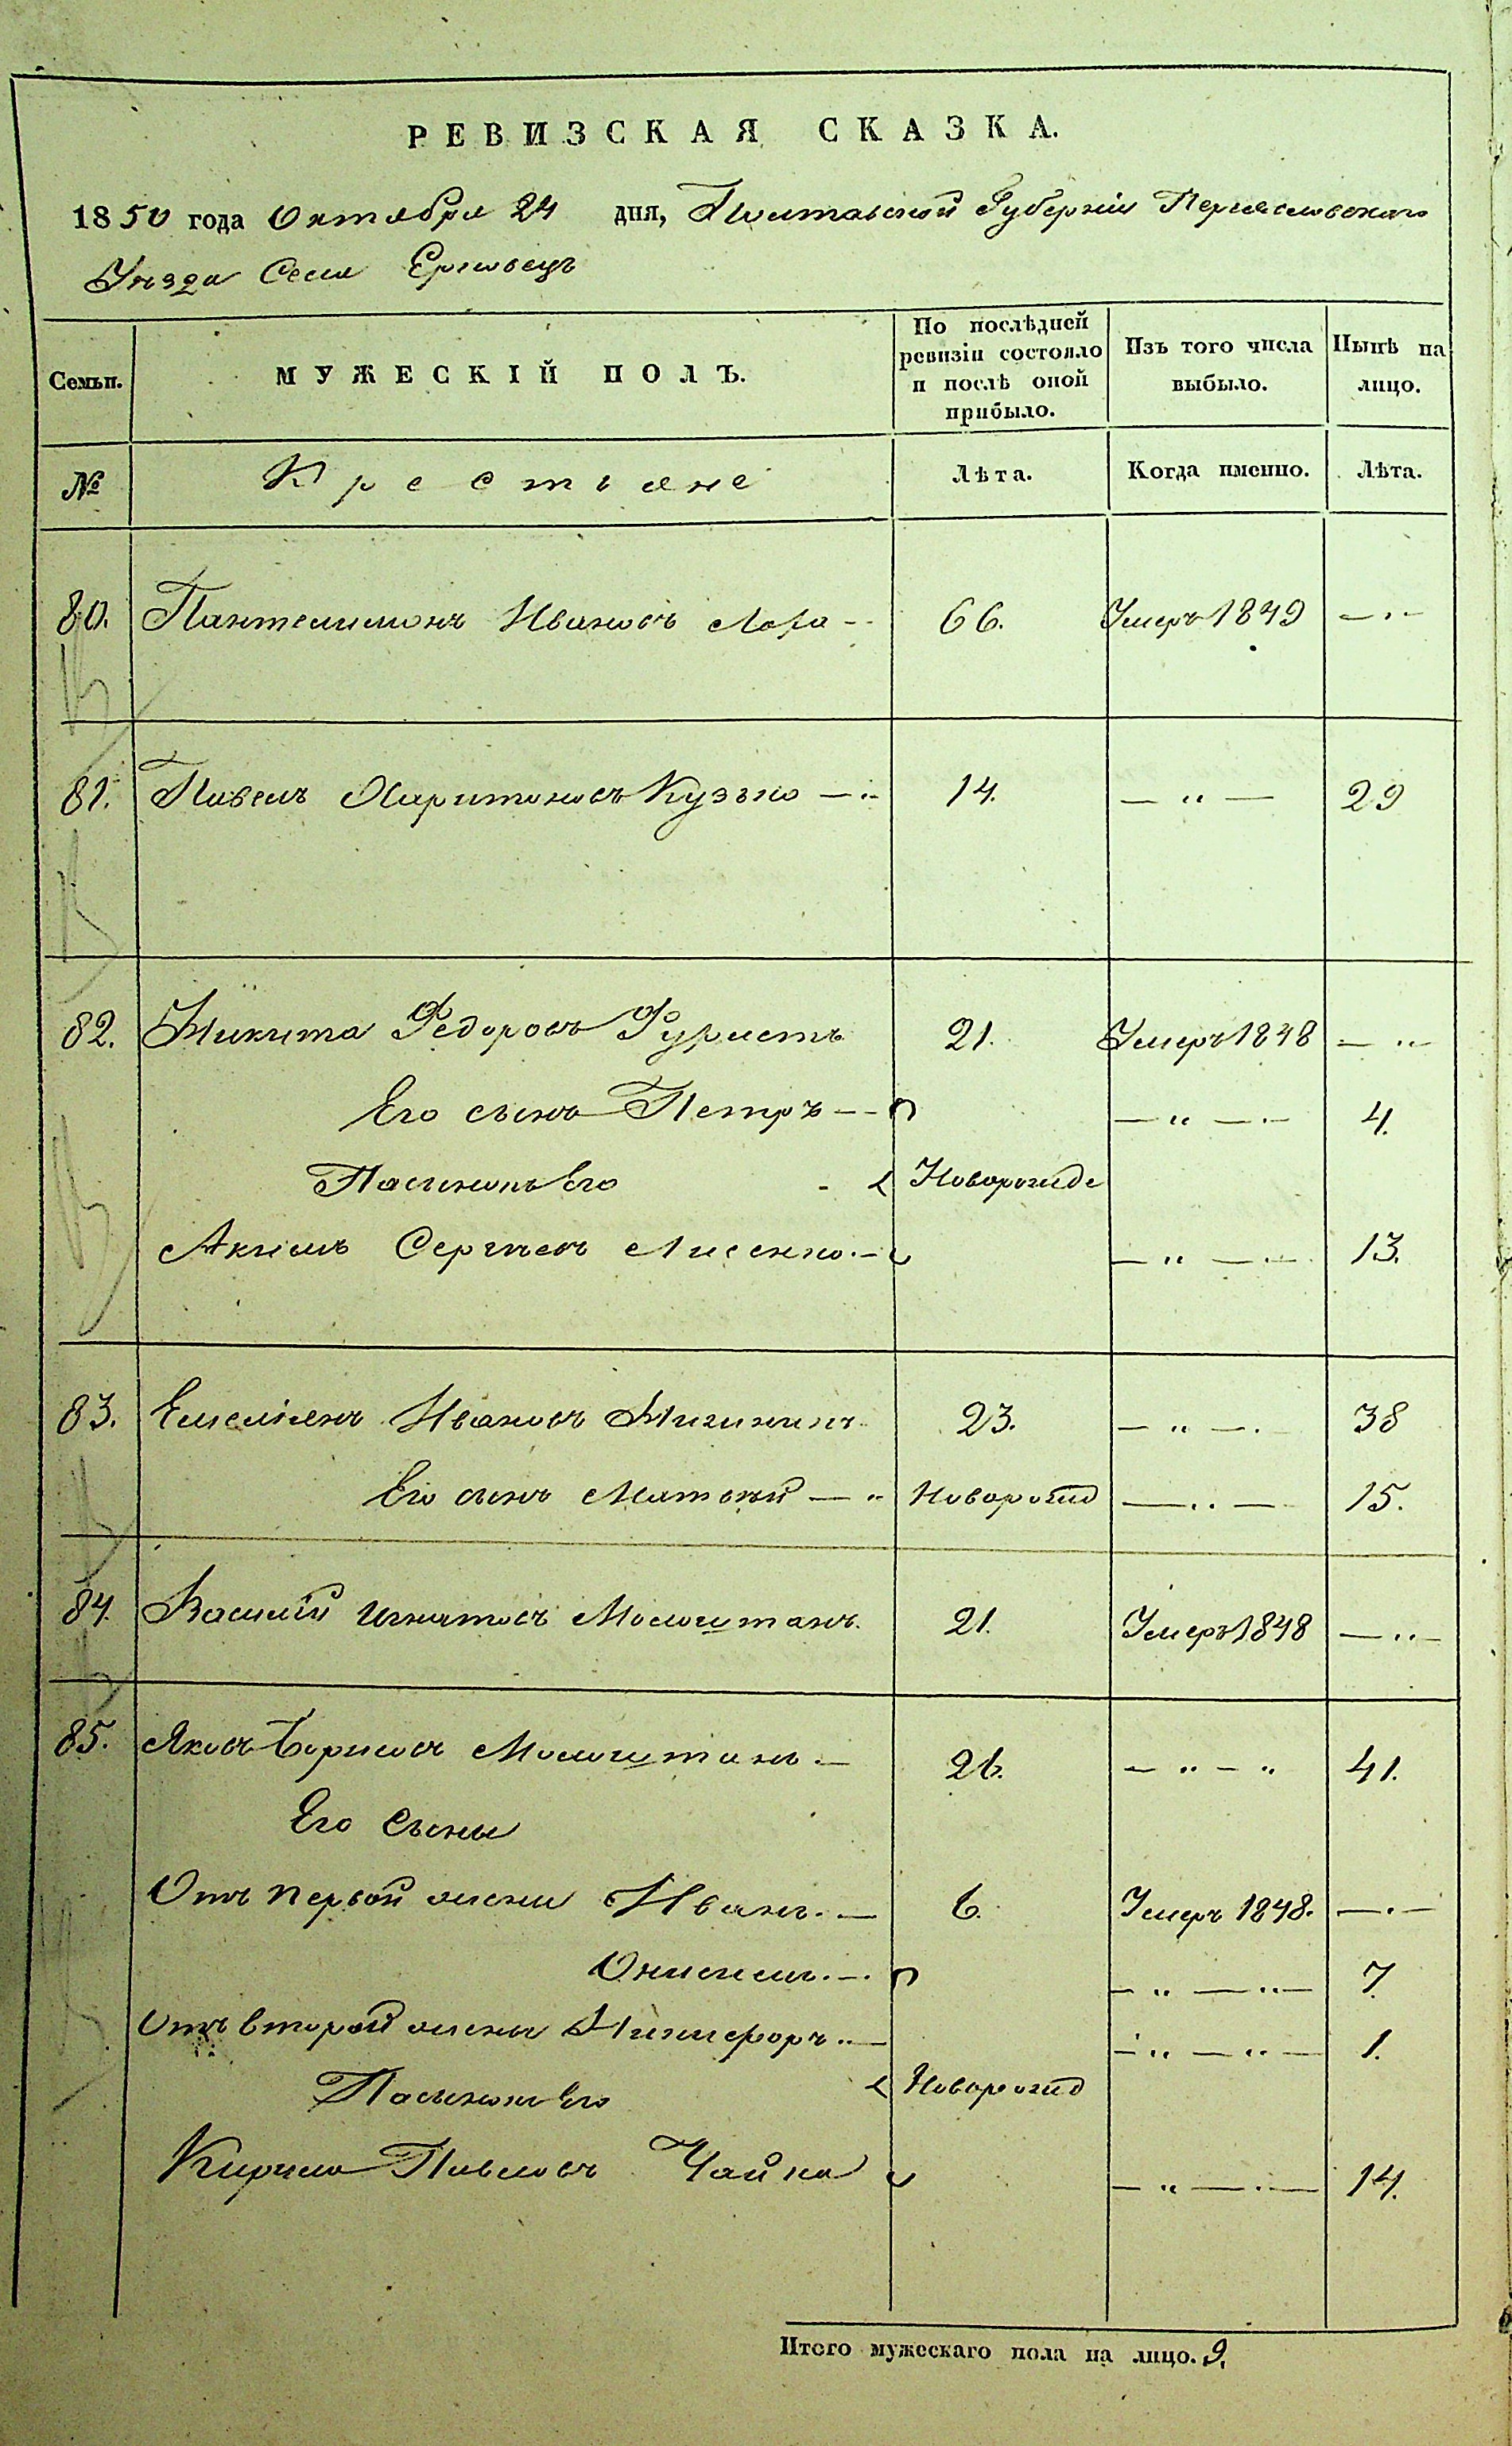 РЕВИЗСКАЯ СКАЗКА.
1850 года Октября 24 дня, Полтавской Губерніи Переяславского
Уѣзда Села Ерковецъ
Семьи. МУЖЕСКІЙ ПОЛЪ. По послѣдней ревизіи состояло и послѣ оной прибыло. Изъ того числа выбыло. Нынѣ на лицо.
№ Крестьяне Лѣта. Когда именно. Лѣта.
80. Пантелимонъ Ивановъ 66. Умеръ 1849 — · —
81. Павелъ Харитоновъ Кузько 14. — " — 29
82. Никита Федоровъ 21. Умеръ 1848 — "
Его сынъ Петръ — " — 4.
Пасинокъ Его Новорожде
Акимъ Сергѣевъ Лисенко — " — 13.
83. Емеліянъ Ивановъ 23. — " — 38
Его сынъ Матвѣй — " Новорожд — " — 15.
84. Василій Игнатовъ 21. Умеръ 1848 — " —
85. Яковъ Борисовъ 26. — " — " 41.
Его Сыны
Отъ первой жены Иванъ. — 6. Умеръ 1848. — · —
Онисимъ. — " — " — 7
Отъ второй жены Никифоръ — " — " — 1.
Пасынокъ Его Новорожд
Кирило Павловъ Чайка — " — · — 14.
Итого мужескаго пола на лицо. 9.